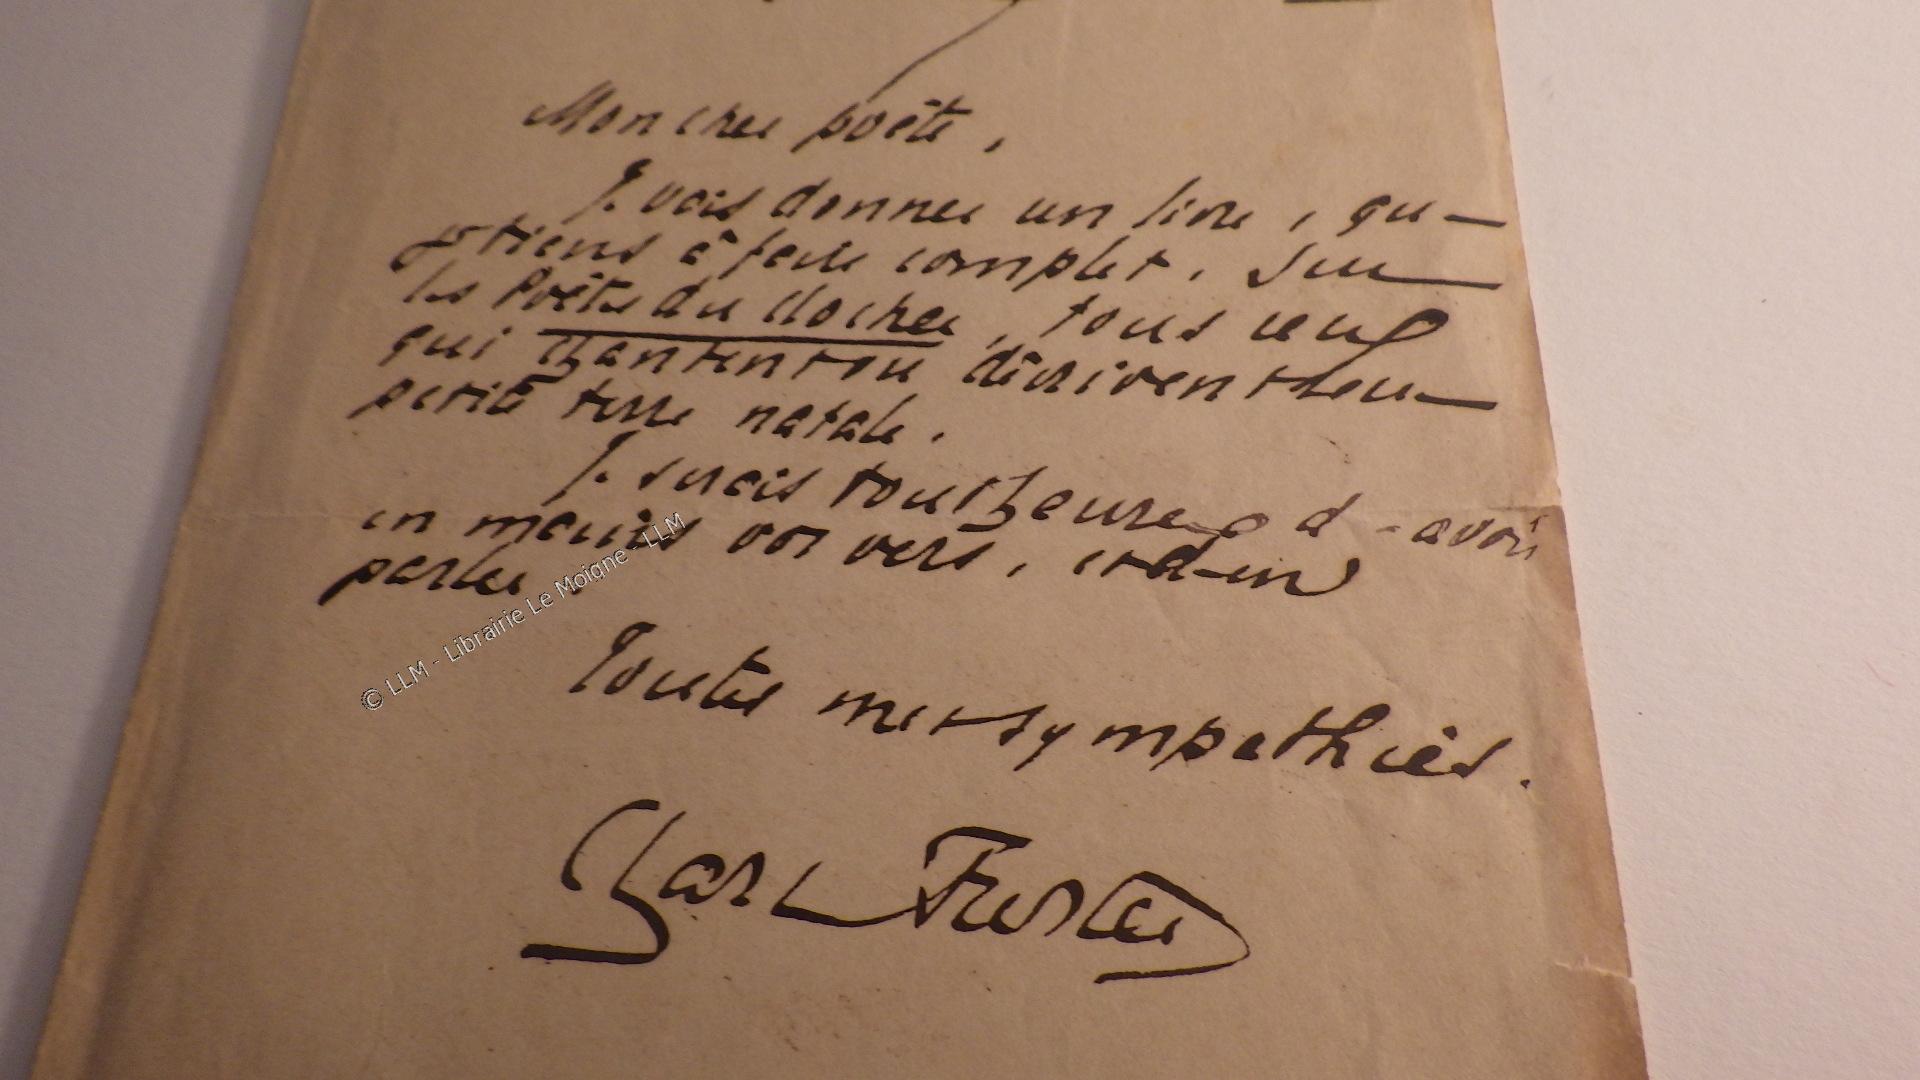 Mon cher poète,
Je vais donner un livre, que
je tiens à faire complet, sur
les Poètes du clocher, tous ceux
qui chantent ou décrivent leur
petite terre natale.
Je serais tout heureux d'avoir
en mains vos vers, et d'en
parler.
Toutes mes sympathies.
Charles Fuster
© LLM - Librairie Le Moigne - LLM